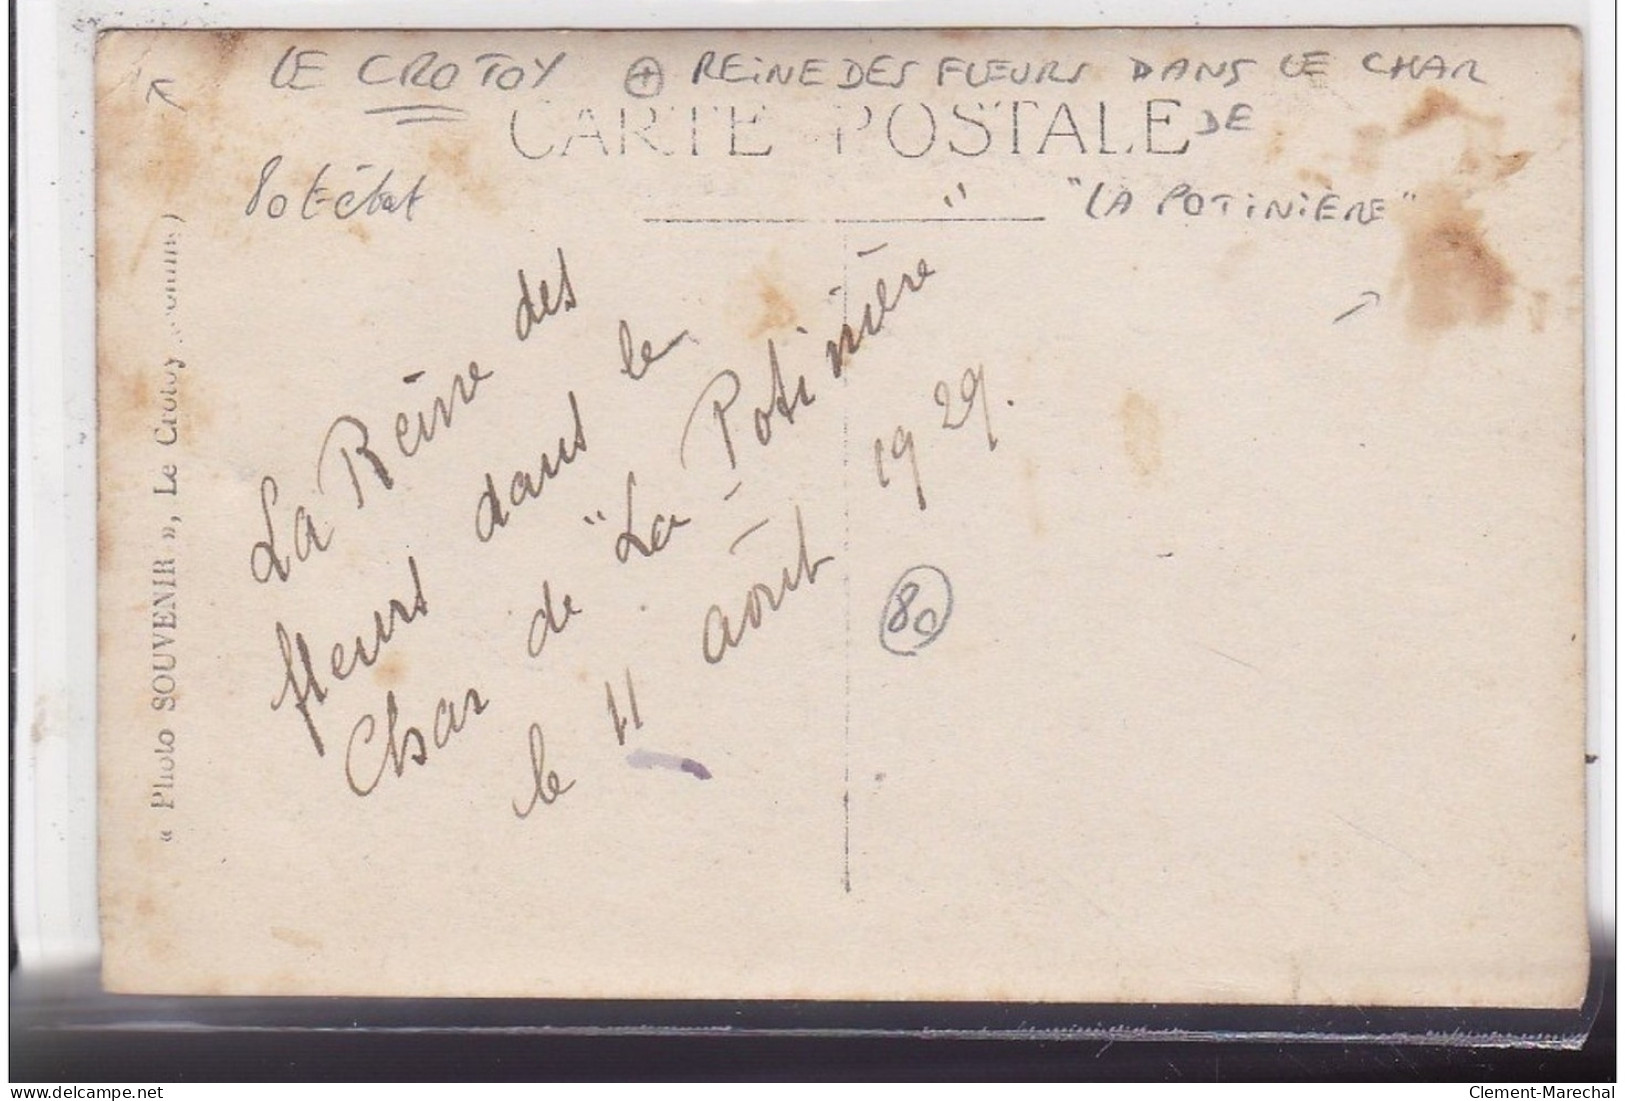 LE CROTOY ⊕ REINE DES FLEURS DANS LE CHAR
DE
CARTE POSTALE
"LA POTINIÈRE"
La Reine des
fleurs dans le
Char de "La Potinière"
le 11 août 1929.
80
« Photo SOUVENIR », Le Crotoy (Somme)
delcampe.net
Clement-Marechal